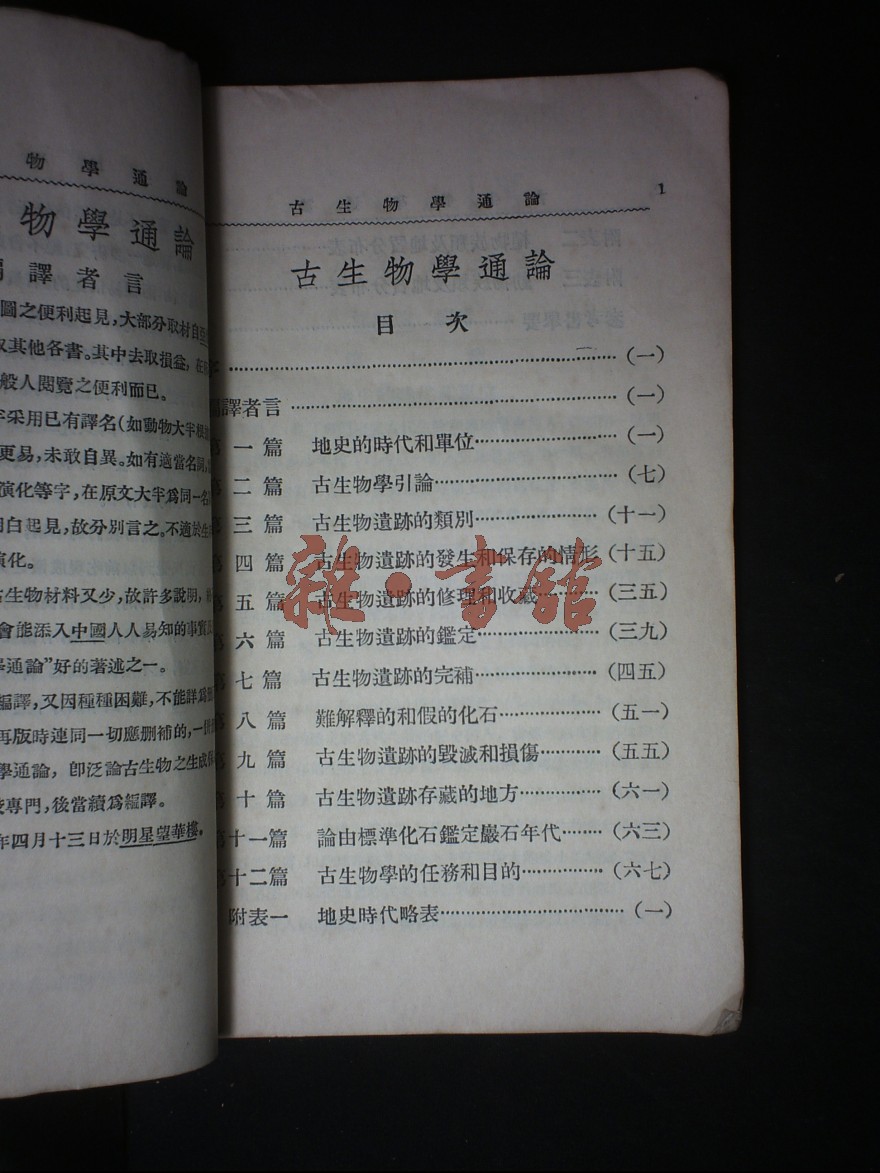 物學通論
物學通論
譯者言
圖之便利起見,大部分取材自
其他各書。其中去取損益,在
般人閱覽之便利而已。
采用已有譯名(如動物大半
更易,未敢自異。如有適當名詞,
演化等字,在原文大半爲同一名
明白起見,故分別言之。不適於生
演化。
古生物材料又少,故許多說明,
會能添入中國人人易知的事實
學通論”好的著述之一。
編譯,又因種種困難,不能詳爲
再版時連同一切應删補的,一
學通論,卽泛論古生物之生成
專門,後當續爲編譯。
年四月十三日於明星望華樓。
古生物學通論 1
古生物學通論
目次
(一)
編譯者言(一)
第一篇 地史的時代和單位(一)
第二篇 古生物學引論(七)
第三篇 古生物遺跡的類別(十一)
第四篇 古生物遺跡的發生和保存的情形(十五)
第五篇 古生物遺跡的修理和收藏(三五)
第六篇 古生物遺跡的鑑定(三九)
第七篇 古生物遺跡的完補(四五)
第八篇 難解釋的和假的化石(五一)
第九篇 古生物遺跡的毀滅和損傷(五五)
第十篇 古生物遺跡存藏的地方(六一)
第十一篇 論由標準化石鑑定巖石年代(六三)
第十二篇 古生物學的任務和目的(六七)
附表一 地史時代略表(一)
雜·書館